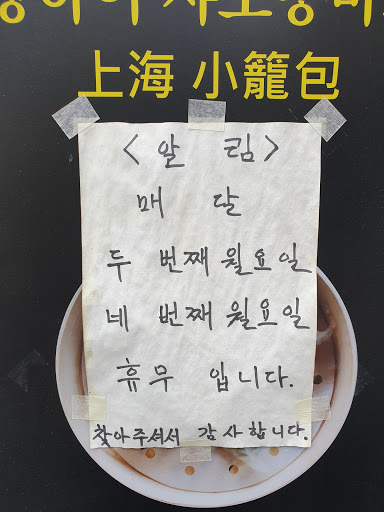 上海 小籠包
<알 림>
매 달
두 번째 월요일
네 번째 월요일
휴무 입니다.
찾아주셔서 감사합니다.